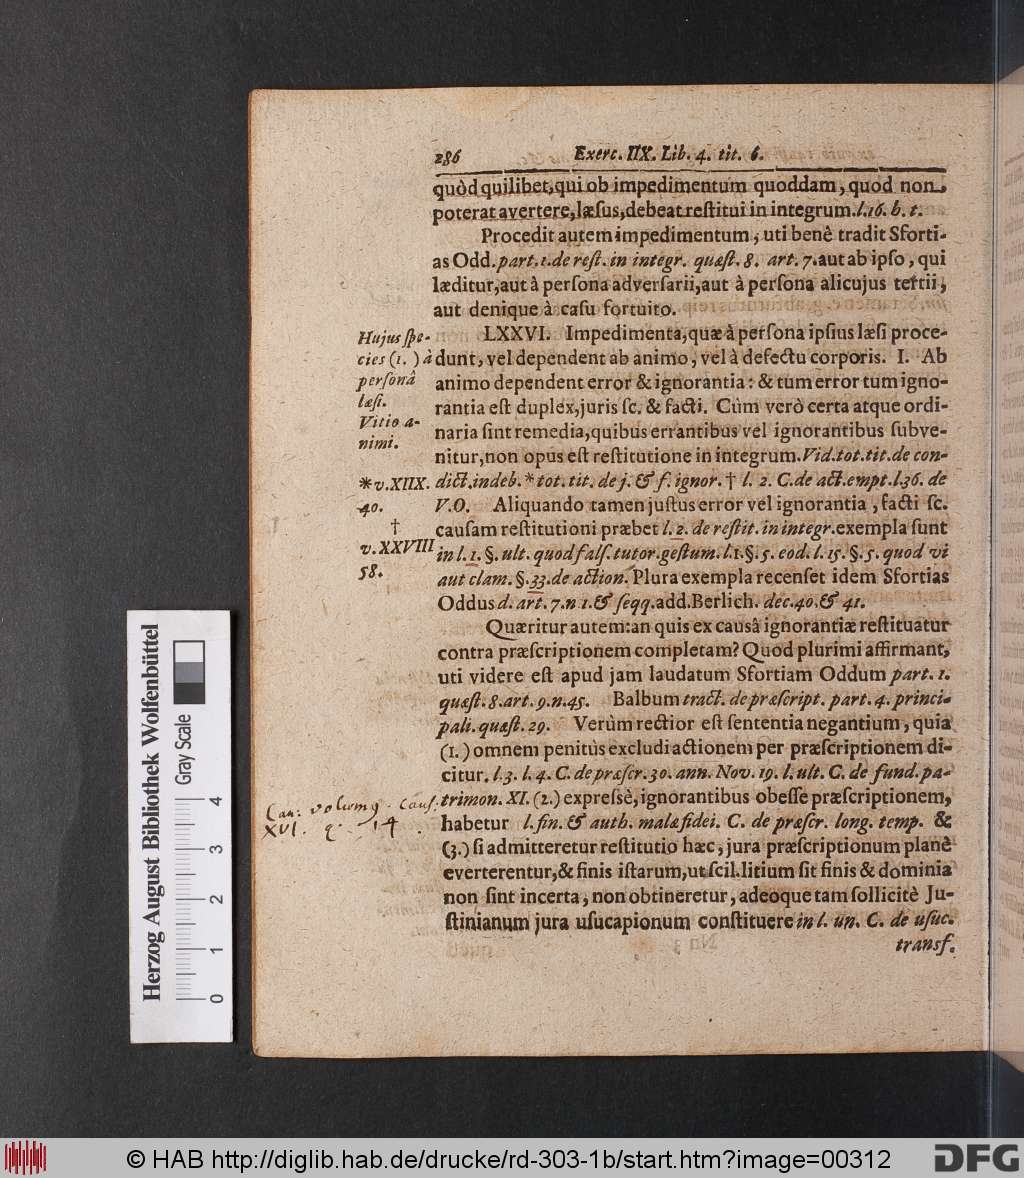 286 Exerc. IIX. Lib. 4. tit. 6.
quòd quilibet, qui ob impedimentum quoddam, quod non
poterat avertere, læſus, debeat reſtitui in integrum. l. 16. h. t.
Procedit autem impedimentum, uti benè tradit Sforti-
as Odd. part. 1. de reſt. in integr. quæſt. 8. art. 7. aut ab ipſo, qui
læditur, aut à perſona adverſarii, aut à perſona alicujus tertii,
aut denique à caſu fortuito.
Hujus ſpe-
cies (1.) à
perſonâ
læſi.
Vitio a-
nimi.
LXXVI. Impedimenta, quæ à perſona ipſius læſi proce-
dunt, vel dependent ab animo, vel à defectu corporis. I. Ab
animo dependent error & ignorantia: & tum error tum igno-
rantia eſt duplex, juris ſc. & facti. Cùm verò certa atque ordi-
naria ſint remedia, quibus errantibus vel ignorantibus ſubve-
nitur, non opus eſt reſtitutione in integrum. Vid. tot. tit. de con-
* v. XIIX.
40.
†
v. XXVIII
58.
dict. indeb. * tot. tit. de j. & f. ignor. † l. 2. C. de act. empt. l. 36. de
V. O. Aliquando tamen juſtus error vel ignorantia, facti ſc.
cauſam reſtitutioni præbet l. 2. de reſtit. in integr. exempla ſunt
in l. 1. §. ult. quod falſ. tutor. geſtum. l. 1. §. 5. eod. l. 15. §. 5. quod vi
aut clam. §. 33. de action. Plura exempla recenſet idem Sfortias
Oddus d. art. 7. n 1. & ſeqq. add. Berlich. dec. 40. & 41.
Quæritur autem: an quis ex causâ ignorantiæ reſtituatur
contra præſcriptionem completam? Quod plurimi affirmant,
uti videre eſt apud jam laudatum Sfortiam Oddum part. 1.
quæſt. 8. art. 9. n. 45. Balbum tract. de præſcript. part. 4. princi-
pali. quæſt. 29. Verùm rectior eſt ſententia negantium, quia
(1.) omnem penitùs excludi actionem per præſcriptionem di-
citur. l. 3. l. 4. C. de præſcr. 30. ann. Nov. 19. l. ult. C. de fund. pa-
trimon. XI. (2.) expreſsè, ignorantibus obeſſe præſcriptionem,
habetur l. fin. & auth. malæ fidei. C. de præſcr. long. temp. &
(3.) ſi admitteretur reſtitutio hæc, jura præſcriptionum planè
everterentur, & finis iſtarum, ut ſcil. litium ſit finis & dominia
non ſint incerta, non obtineretur, adeoque tam ſollicitè Ju-
ſtinianum jura uſucapionum conſtituere in l. un. C. de uſuc.
transf.
Can: volumus. Cauſ.
XVI. q. 14.
Herzog August Bibliothek Wolfenbüttel
Gray Scale
0 1 2 3 4
© HAB http://diglib.hab.de/drucke/rd-303-1b/start.htm?image=00312
DFG